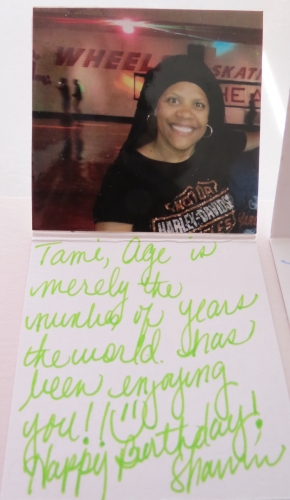 WHEEL
SKATI
HEA
MOTOR
HARLEY-DAVIDS
CYCLES
Tami, Age is
merely the
number of years
the world has
been enjoying
you!(!!!)
Happy Birthday!
Shawn